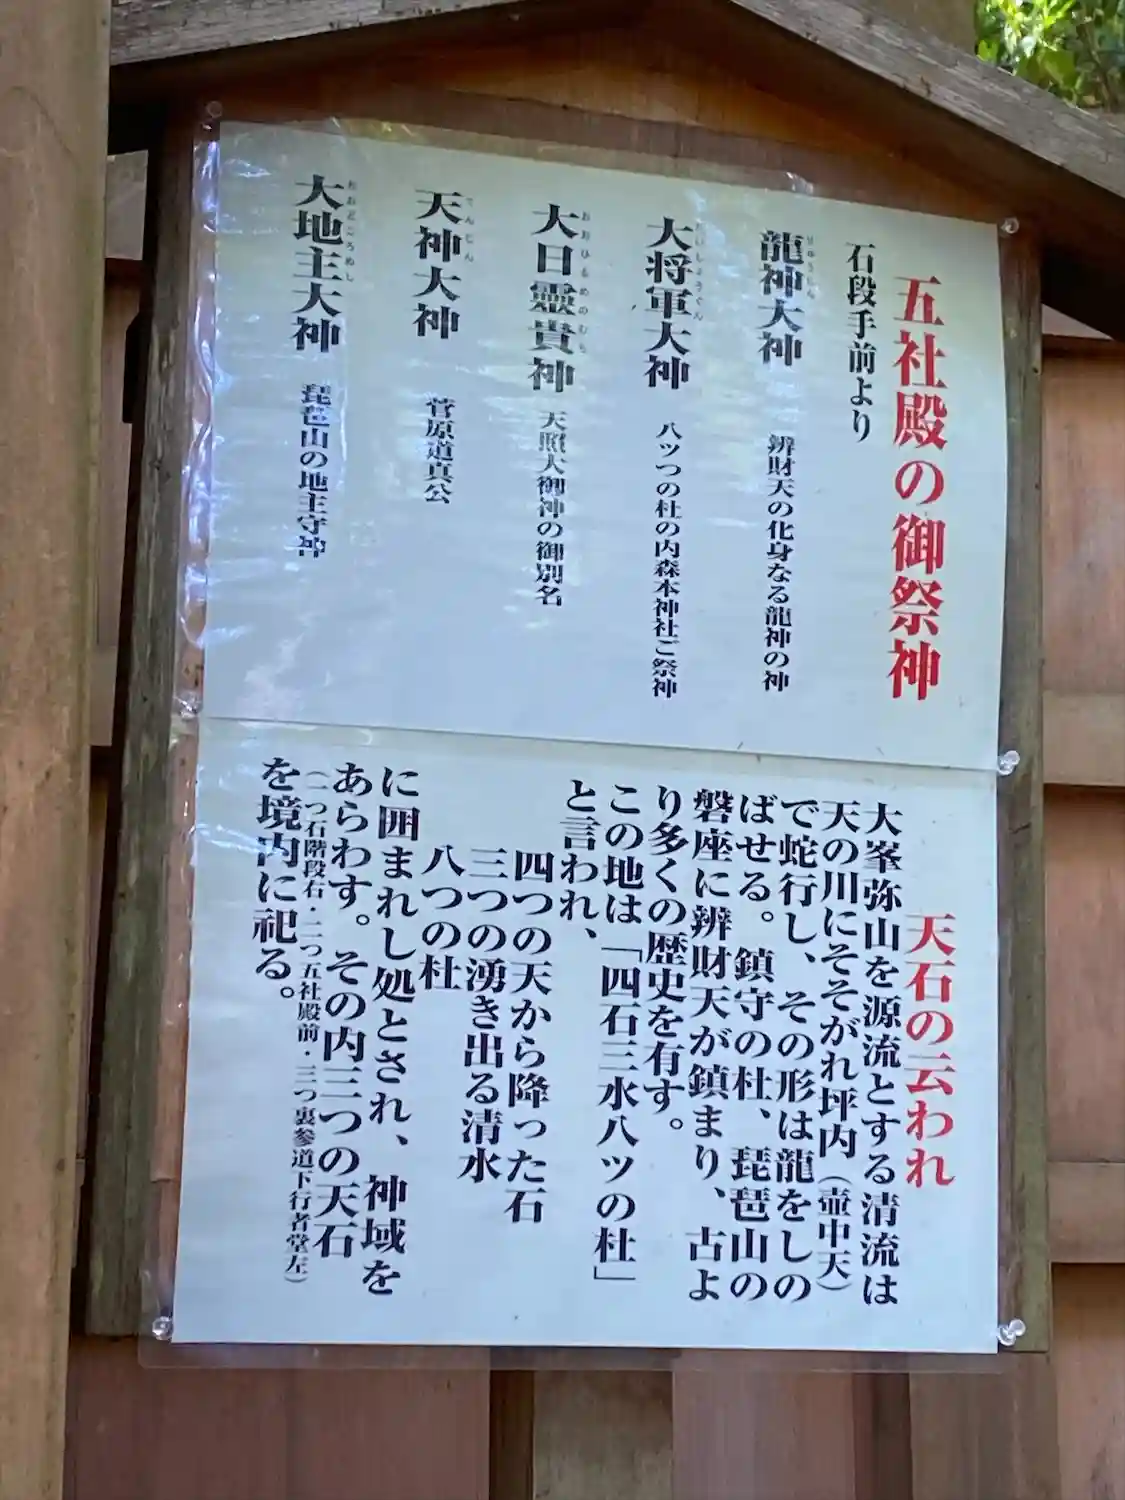 五社殿の御祭神
石段手前より
龍神大神 辨財天の化身なる龍神の神
りゅうじん
大将軍大神 八ッつの杜の内森本神社ご祭神
たいしょうぐん
大日靈貴神 天照大御神の御別名
おおひるめのむち
天神大神 菅原道真公
てんじん
大地主大神 琵琶山の地主守神
おおどころぬし
天石の云われ
大峯弥山を源流とする清流は
天の川にそそがれ坪内（壷中天）
で蛇行し、その形は龍をしの
ばせる。鎮守の杜、琵琶山の
磐座に辨財天が鎮まり、古よ
り多くの歴史を有す。
この地は「四石三水八ッの杜」
と言われ、
四つの天から降った石
三つの湧き出る清水
八つの杜
に囲まれし処とされ、神域を
あらわす。その内三つの天石
（一つ石階段右・二つ五社殿前・三つ裏参道下行者堂左）
を境内に祀る。